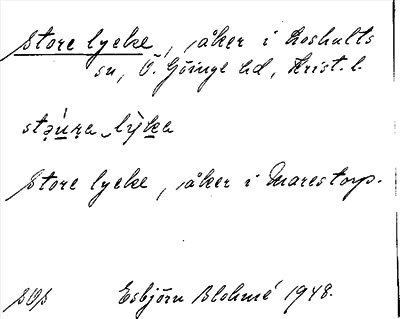 Store lycke, åker i Loshults
sn, Ö. Göinge hd, Krist. l.
stǝu̇ra lẏka
Store lycke, åker i Marestorp.
Esbjörn Blohmé 1948.